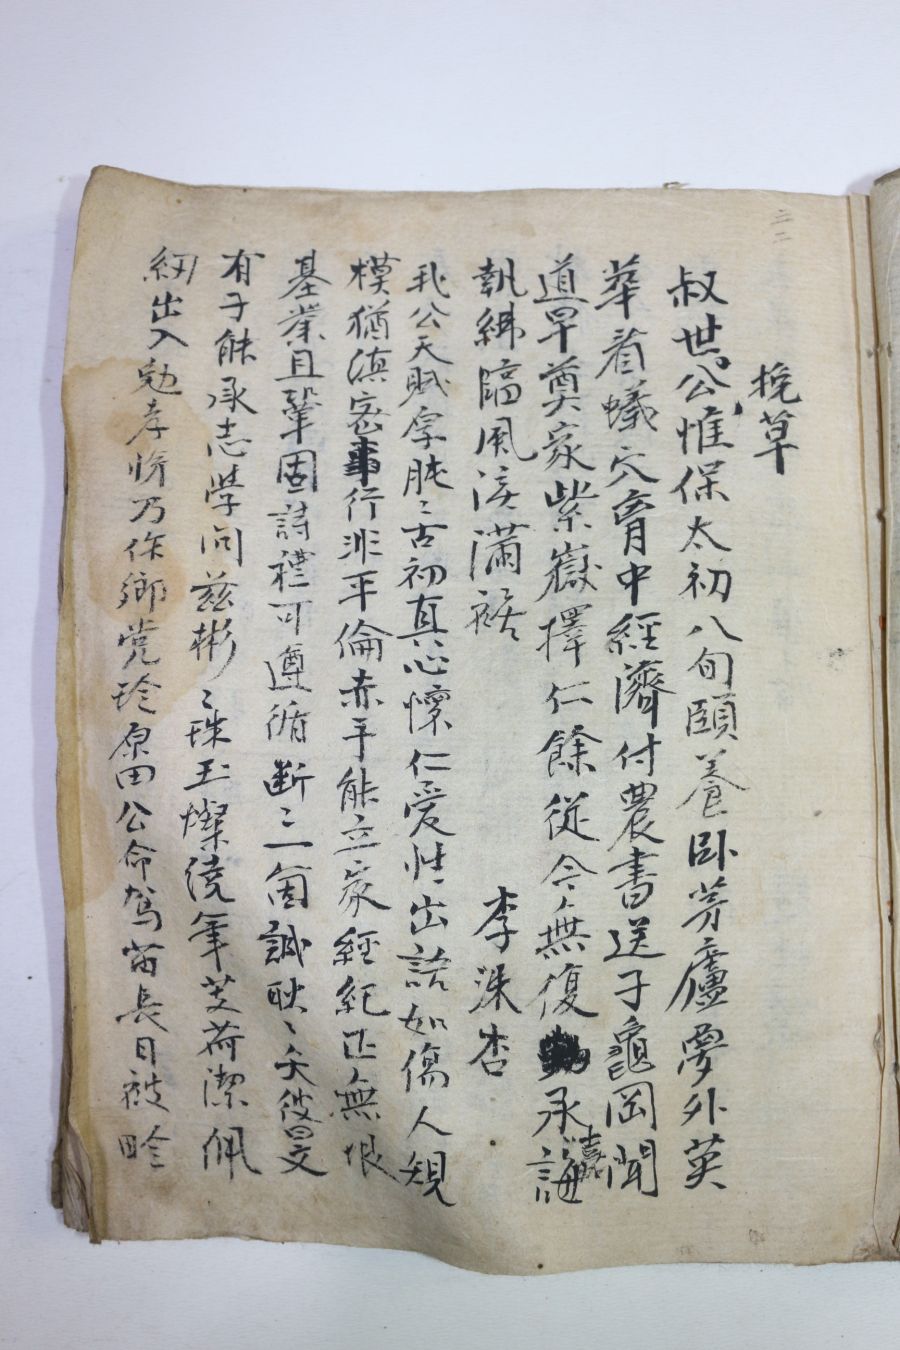 挽草
叔世公惟保太初八旬頤養卧芳廬夢外英
華看蟻穴胷中經濟付農書送子龜岡聞
道早奠家紫嶽擇仁餘從今無復承嘉誨
執紼臨風淚滿裾
李洙杏
我公天賦厚肫〻古初真心懷仁愛性出語如傷人規
模猶滇密行非平倫赤手能立家經紀正無垠
基業且鞏固詩禮可遵循斷〻一箇誠耿〻矢彼旻
有子能承志學问兹彬〻珠玉燦繞筆芰荷潔佩
紉出入勉孝悌乃作鄉党珍原田公命駕苗長日被畛